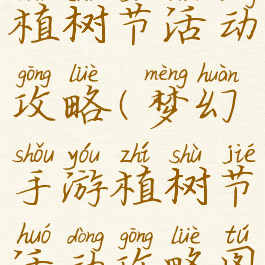 植树节活动
gōng lüè mèng huàn
攻略(梦幻
shǒu yóu zhí shù jié
手游植树节
huó dòng gōng lüè tú
活动攻略图